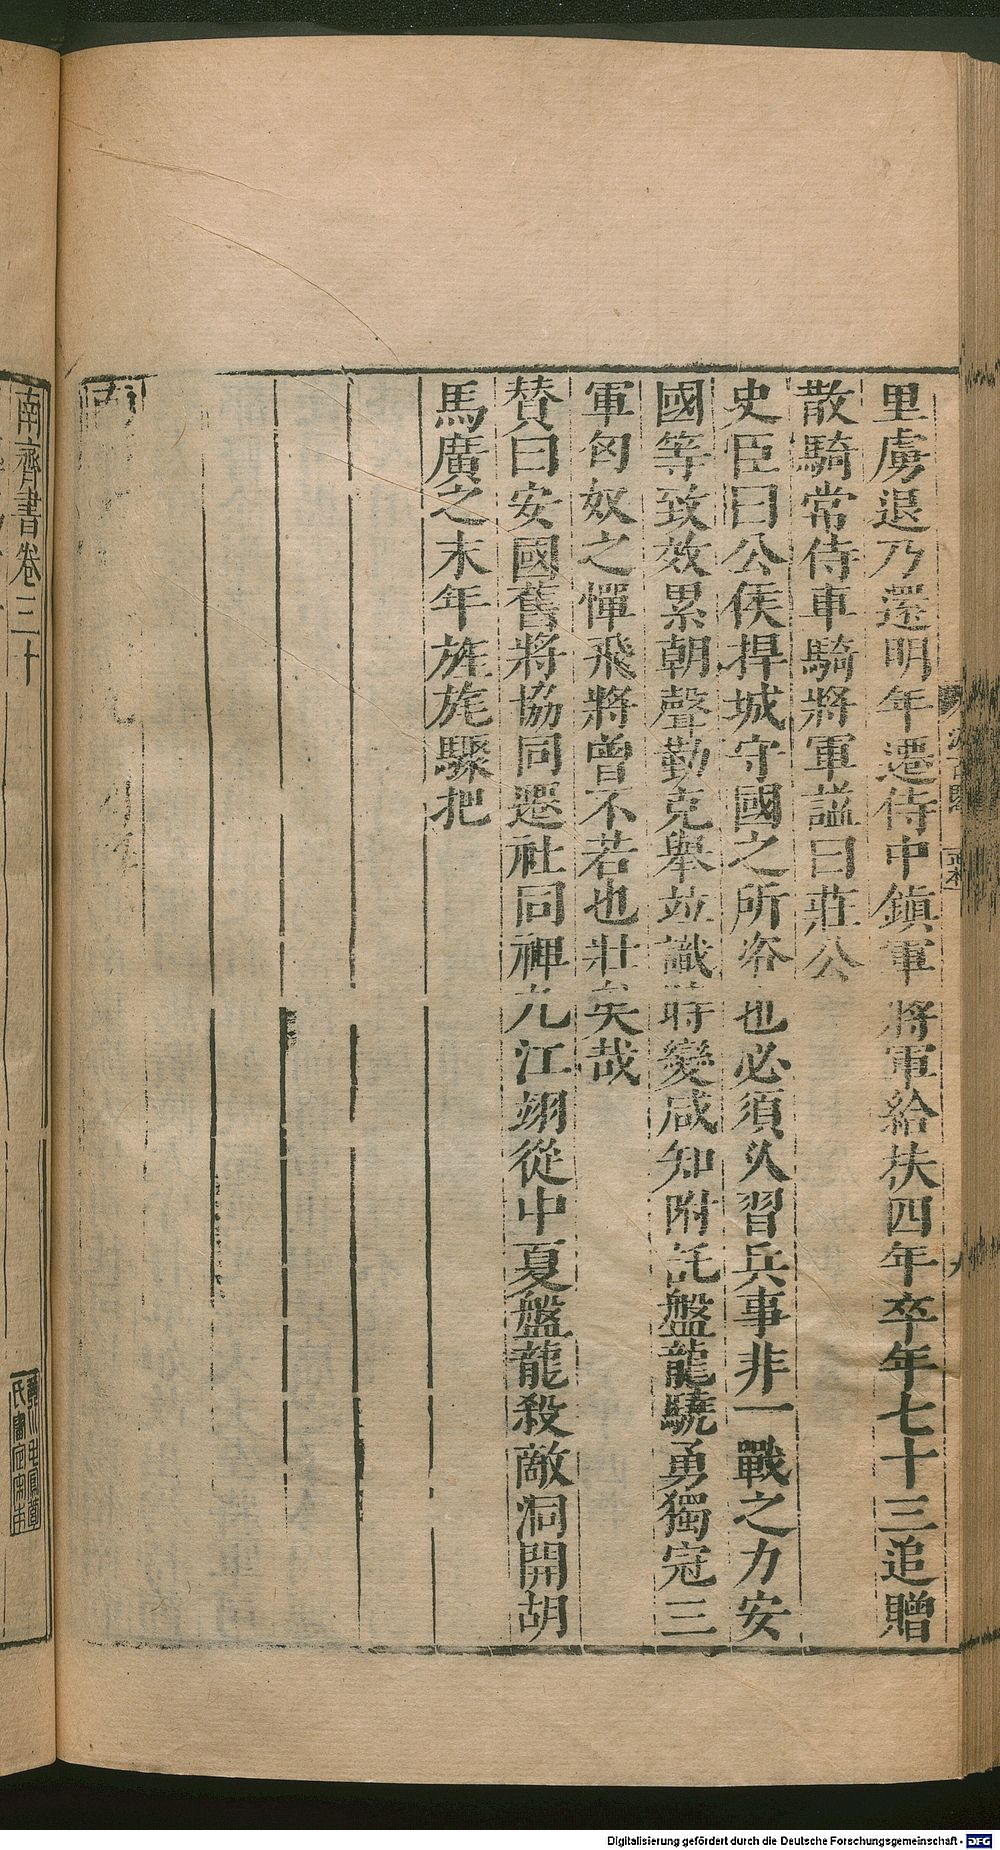 里虜退乃還明年遷侍中鎮軍將軍給扶四年卒年七十三追贈
散騎常侍車騎將軍諡曰莊公
史臣曰公侯捍城守國之所資也必須久習兵事非一戰之力安
國等致效累朝聲勤克舉並識時變咸知附託盤龍驍勇獨冠三
軍匈奴之憚飛將曾不若也壯矣哉
贊曰安國舊將協同遷社同裨九江翊從中夏盤龍殺敵洞開胡
馬廣之末年旌旄驟把
南齊書卷三十
氏
Digitalisierung gefördert durch die Deutsche Forschungsgemeinschaft - DFG